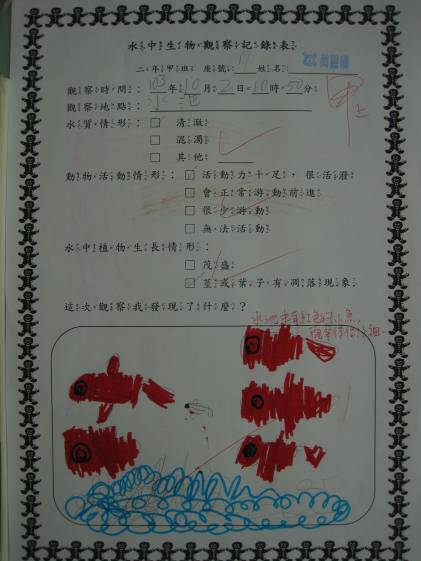 水中生物觀察記錄表
二年甲班 座號：17 姓名：
觀察時間：103年10月2日10時50分
觀察地點：水池
水質情形：□ 清澈
□ 混濁
□ 其他
動物活動情形：☑ 活動力十足，很活潑
□ 會正常游動前進
□ 很少游動
□ 無法活動
水中植物生長情形：
□ 茂盛
☑ 莖或葉子有凋落現象
這次觀察我發現了什麼？
水池中有紅色的小魚，
甲上